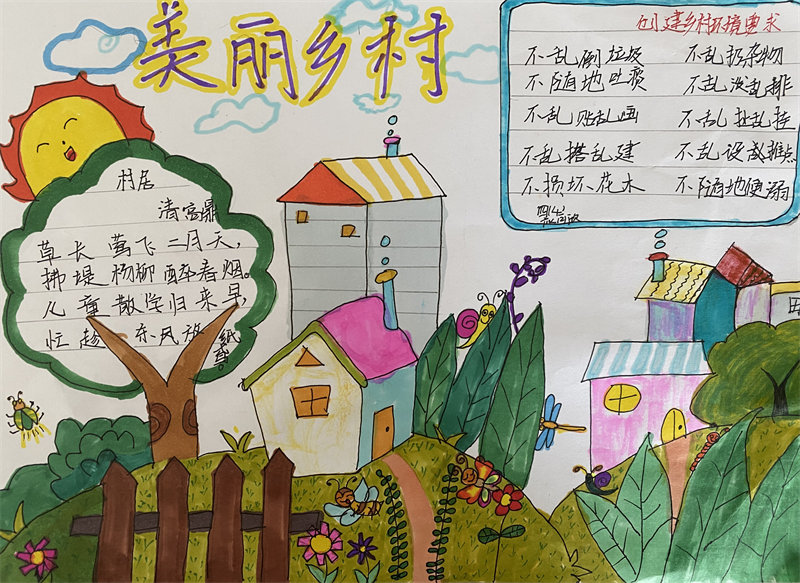 美丽乡村
村居
清高鼎
草长莺飞二月天,
拂堤杨柳醉春烟。
儿童散学归来早,
忙趁东风放纸鸢。
创建乡村环境要求
不乱倒垃圾 不乱扔杂物
不随地吐痰 不乱泼乱排
不乱贴乱画 不乱扯乱挂
不乱搭乱建 不乱设摊点
不损坏花木 不随地便溺